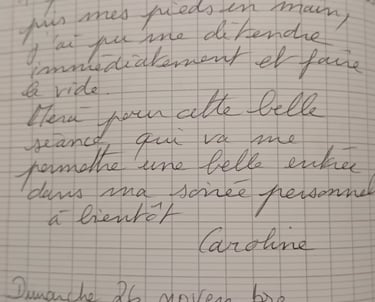 pris mes pieds en main,
j'ai pu me détendre
immédiatement et faire
le vide.
Merci pour cette belle
séance qui va me
permettre une belle entrée
dans ma soirée personnel
à bientôt
Caroline
Dimanche 26 novembre